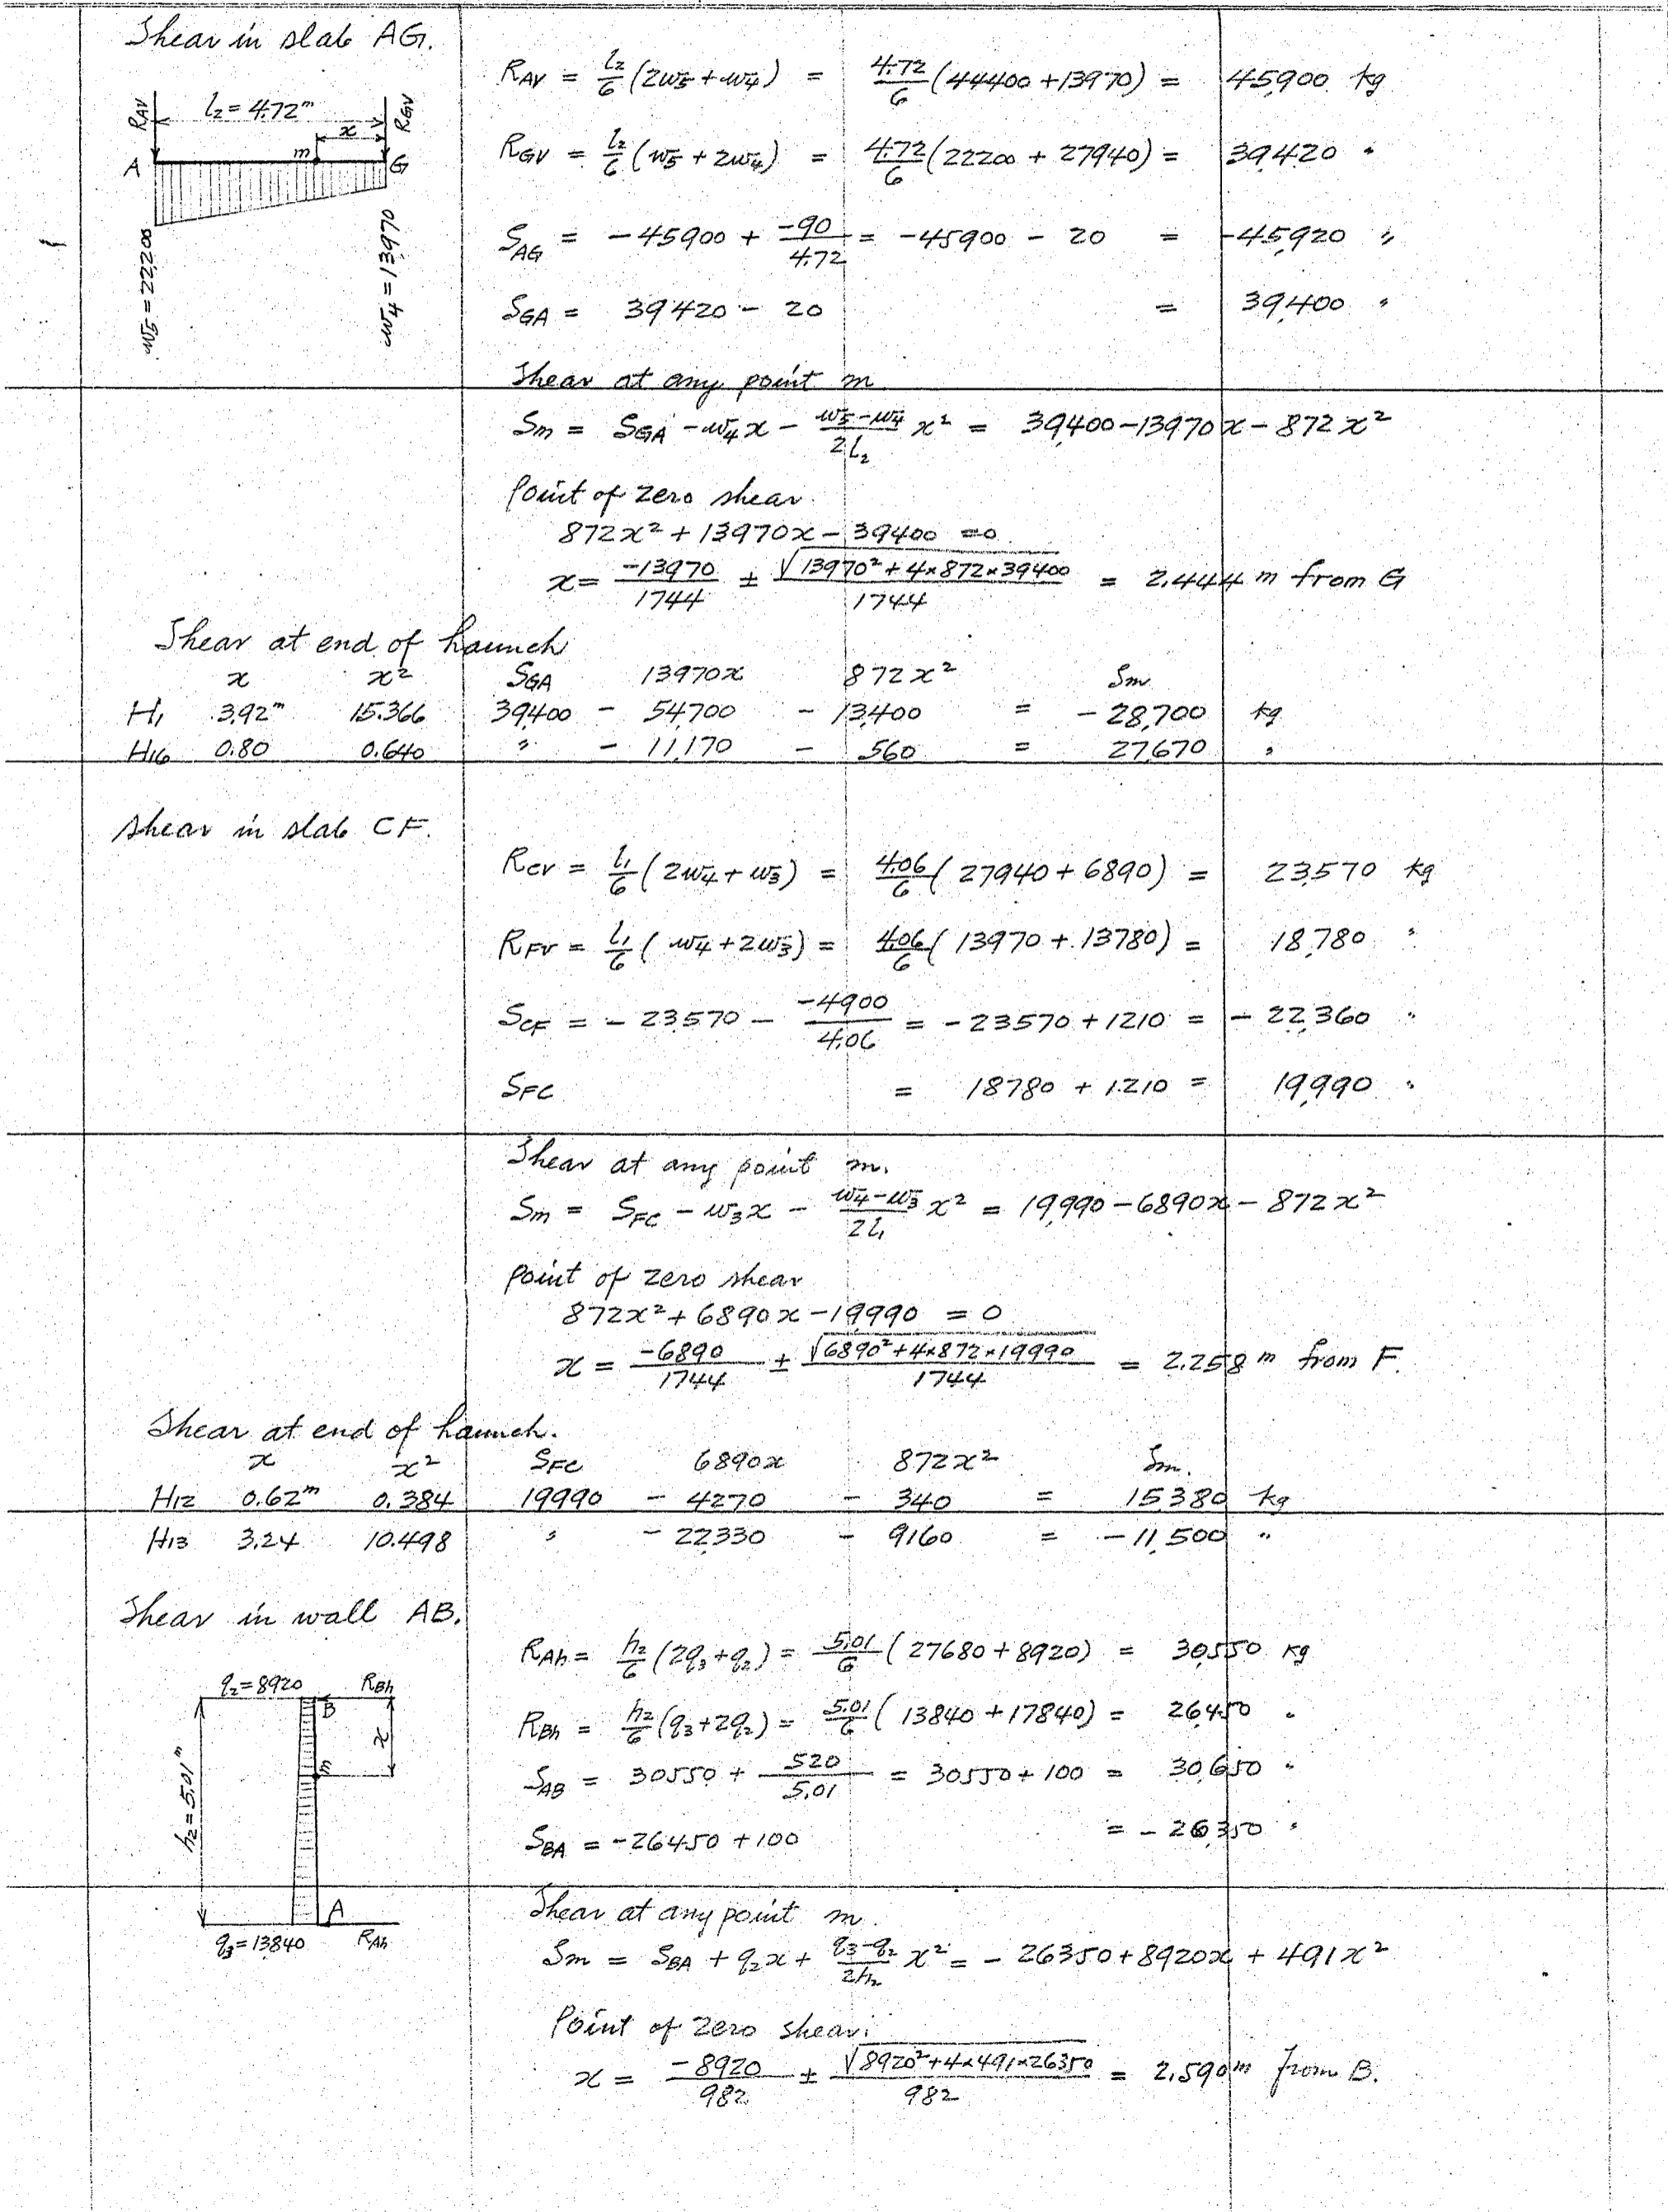 Shear in slab AG.
R_AV = l₂/6 (2w₅ + w₄) = 4.72/6 (44400 + 13970) = 45,900 kg
R_AV l₂ = 4.72ᵐ R_GV
x
A m G
w₅ = 22200 w₄ = 13970
R_GV = l₂/6 (w₅ + 2w₄) = 4.72/6 (22200 + 27940) = 39,420 "
S_AG = -45900 + -90/4.72 = -45900 - 20 = -45,920 "
S_GA = 39420 - 20 = 39,400 "
Shear at any point m
Sm = S_GA - w₄x - (w₅-w₄)/2l₂ x² = 39,400 - 13970x - 872x²
Point of zero shear.
872x² + 13970x - 39400 = 0
x = -13970/1744 ± √(13970² + 4×872×39400)/1744 = 2.444 m from G
Shear at end of haunch
x x² S_GA 13970x 872x² Sm
H₁ 3.92ᵐ 15.366 39,400 - 54,700 - 13,400 = -28,700 kg
H₁₆ 0.80 0.640 " - 11,170 - 560 = 27,670 "
Shear in slab CF.
R_CV = l₁/6 (2w₄ + w₃) = 4.06/6 (27940 + 6890) = 23,570 kg
R_FV = l₁/6 (w₄ + 2w₃) = 4.06/6 (13970 + 13780) = 18,780 "
S_CF = -23,570 - -4900/4.06 = -23570 + 1210 = -22,360 "
S_FC = 18780 + 1210 = 19,990 "
Shear at any point m.
Sm = S_FC - w₃x - (w₄-w₃)/2l₁ x² = 19,990 - 6890x - 872x²
Point of zero shear
872x² + 6890x - 19,990 = 0
x = -6890/1744 ± √(6890² + 4×872×19990)/1744 = 2.258 m from F.
Shear at end of haunch.
x x² S_FC 6890x 872x² Sm.
H₁₂ 0.62ᵐ 0.384 19990 - 4270 - 340 = 15,380 kg
H₁₃ 3.24 10.498 " - 22,330 - 9160 = -11,500 "
Shear in wall AB.
R_Ah = h₂/6 (2q₃ + q₂) = 5.01/6 (27680 + 8920) = 30,550 kg
q₂ = 8920 R_Bh
B
x
h₂ = 5.01ᵐ
A
q₃ = 13840 R_Ah
R_Bh = h₂/6 (q₃ + 2q₂) = 5.01/6 (13840 + 17840) = 26,450 "
S_AB = 30550 + 520/5.01 = 30550 + 100 = 30,650 "
S_BA = -26450 + 100 = -26,350 "
Shear at any point m.
Sm = S_BA + q₂x + (q₃-q₂)/2h₂ x² = -26350 + 8920x + 491x²
Point of zero shear:
x = -8920/982 ± √(8920² + 4×491×26350)/982 = 2.590ᵐ from B.